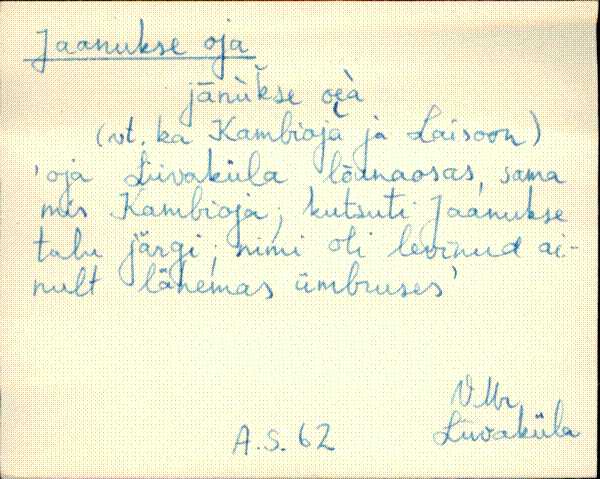 Jaanukse oja
jānùk̆se oi̯à
(vt. ka Kambioja ja Laisoon)
'oja Liivaküla lõunaosas, sama
mis Kambioja; kutsuti Jaanukse
talu järgi; nimi oli levinud ai-
nult lähemas ümbruses'
VMr
A.S. 62 Liivaküla